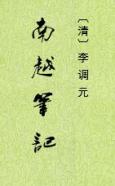 〔清〕李调元
南越筆記